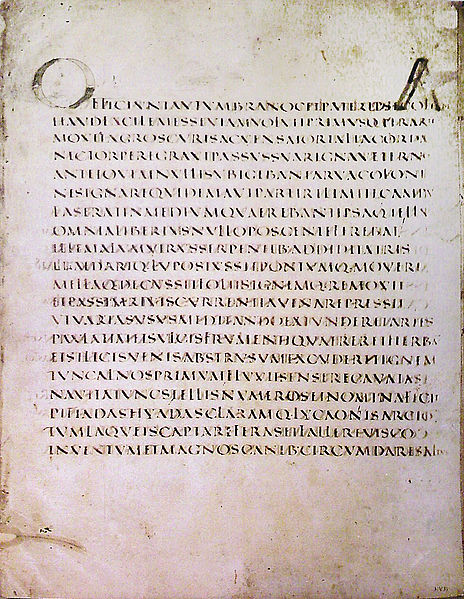 OFFICIVNTAVTVMBRANOCETPATERIPSECOL
HAVDFACILEMESSEVIAMVOLVITPRIMVSQ·PERAR
MOVITAGROSCVRISACVENSMORTALIACORDA
NECTORPEREGRAVIPASSVSSVAREGNAVETERNO
ANTEIOVEMNVLLISVBIGEBANTARVACOLONI
NESIGNAREQVIDEMAVTPARTIRILIMITECAMPV
FASERATINMEDIVMQVAEREBANTIPSAQ·TELLV
OMNIALIBERIVSNVLLOPOSCENTEFEREBAT
ILLEMALVMVIRVSSERPENTIBADDIDITATRIS
PRAEDARIQ·LVPOSIVSSITPONTVMQ·MOVERI
MELLAQ·DECVSSITFOLIISIGNEMQ·REMOVIT
ETPASSIMRIVISCVRRENTIAVINAREPRESSIT
VTVARIASVSVSMEDITANDOEXTVNDERETARTES
PAVLATIMETSVLCISFRVMENTIQVAERERETHERBA
ETSILICISVENISABSTRVSVMEXCVDERETIGNEM
TVNCALNOSPRIMVMFLVVIISENSERECAVATAS
NAVITATVMSTELLISNVMEROSETNOMINAFECIT
PLEIADASHYADASCLARAMQ·LYCAONISARCTO
TVMLAQVEISCAPTAREFERASETFALLEREVISCO
INVENTVMETMAGNOSCANIBCIRCVMDARESAL